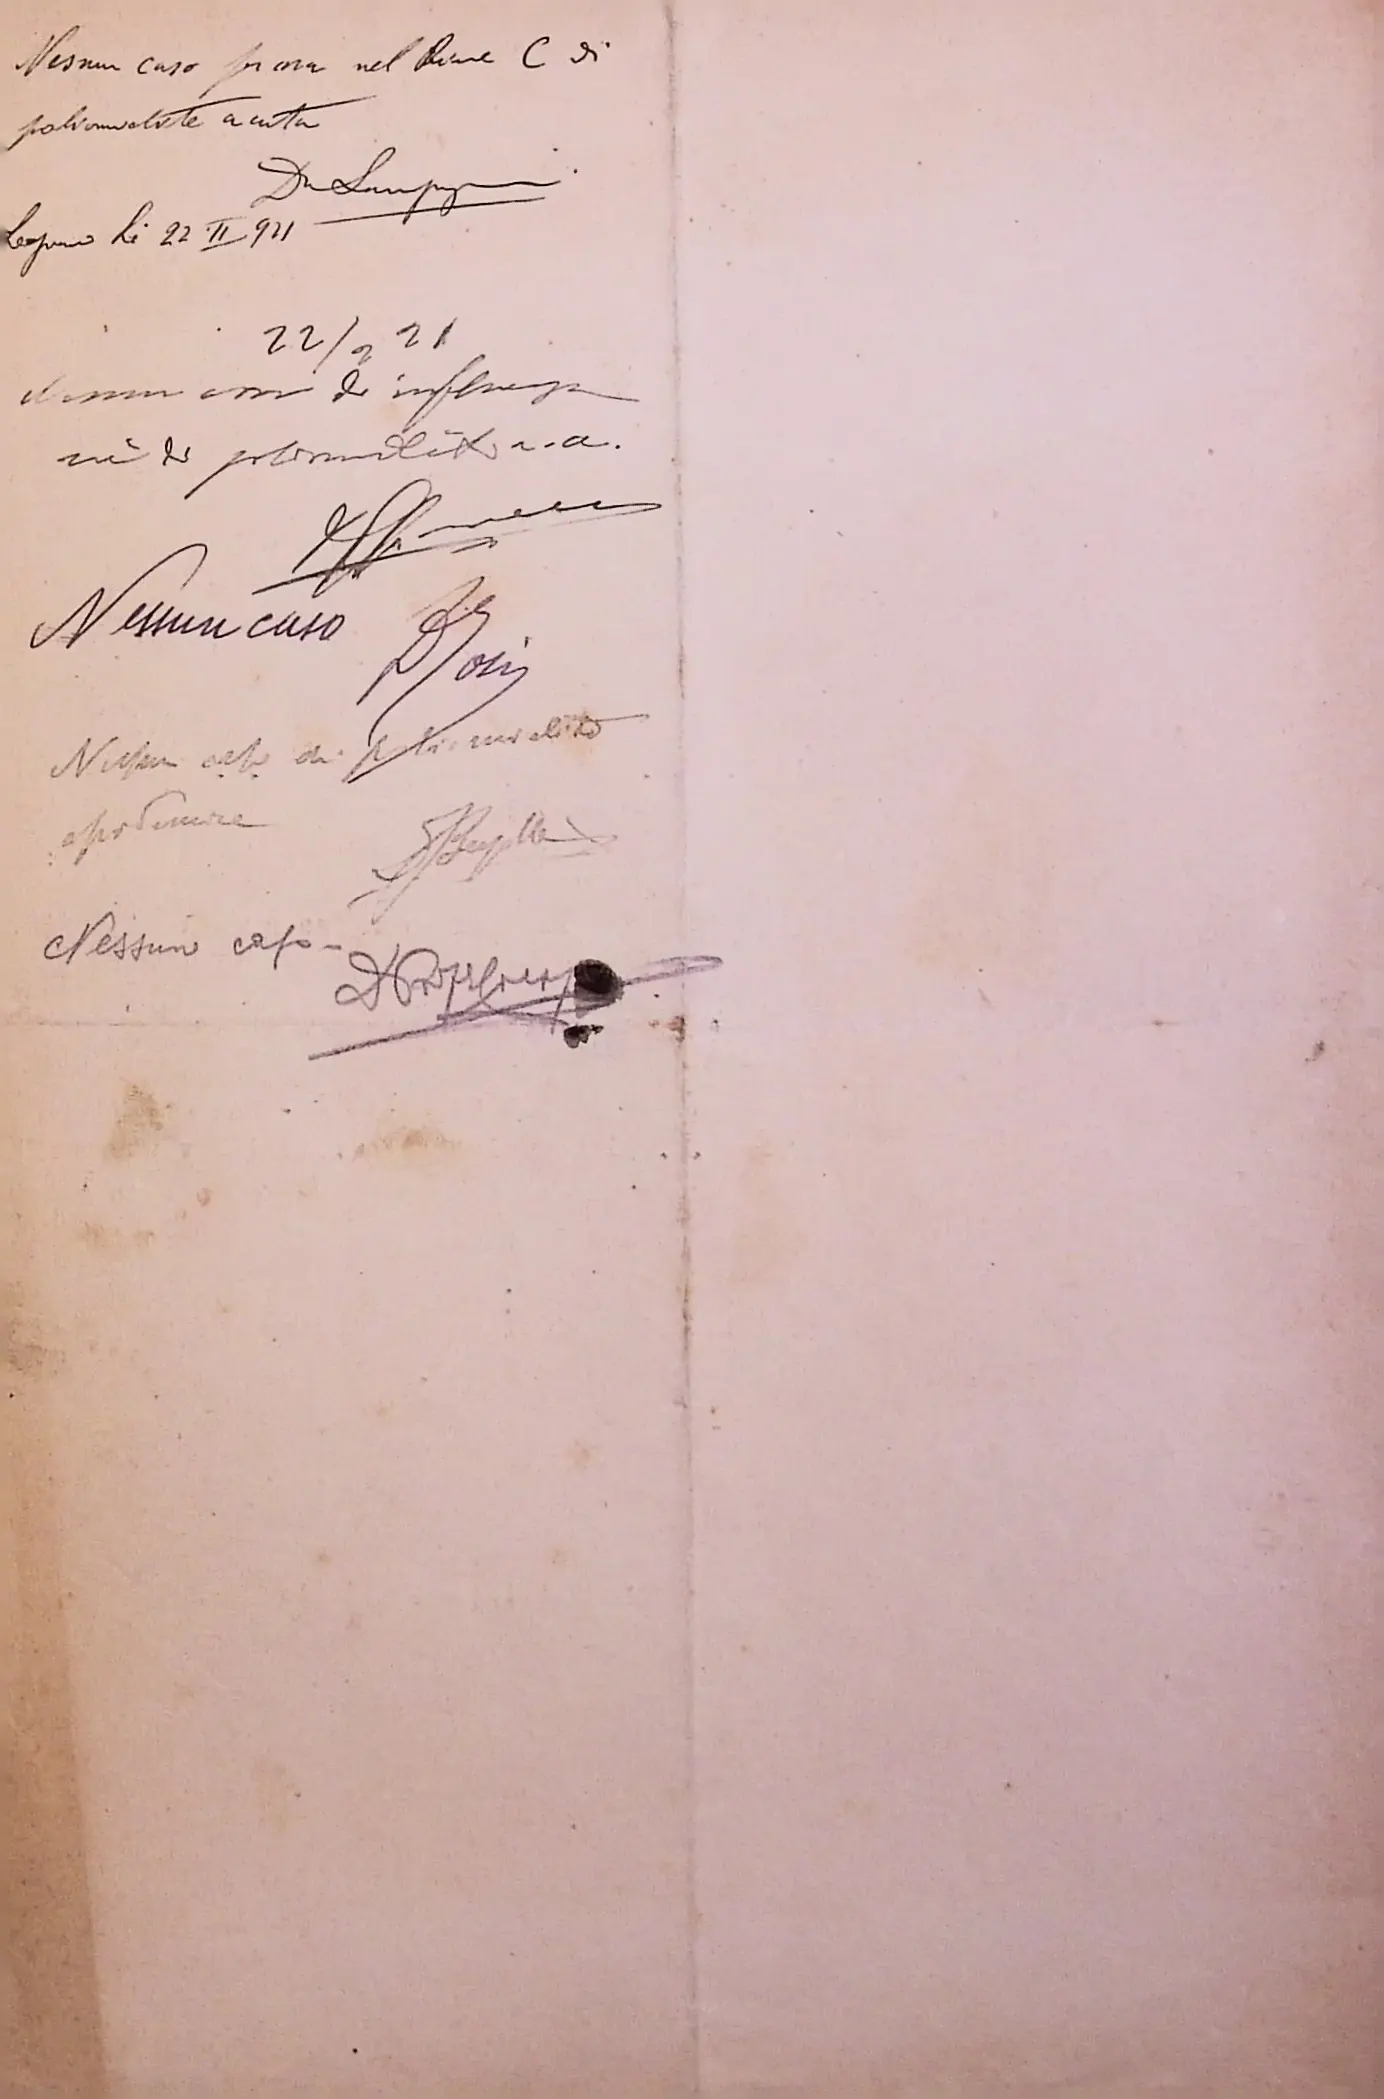 Nessun caso per ora nel Rione C di
poliomielite acuta
Dr
Legnano li 22 II 921
22/2 21
Nessun caso di influenza
nè di poliomielite a.a.
Nessun caso Dr
Nessun caso di poliomielite
anteriore
Nessun caso -
Dr